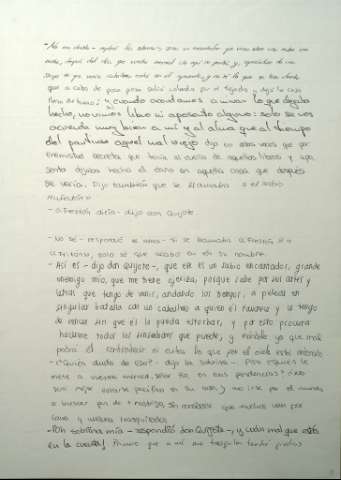 -No era diablo - replicó la sobrina -, sino un encantador que vino sobre una nube una
noche, después del día que vuestra merced de aquí se partió, y, apeándose de una
sierpe en que venía caballero, entró en el aposento, y no sé lo que se hizo dentro
que a cabo de poca pieza salió volando por el tejado, y dejó la casa
llena de humo; y cuando acordamos a mirar lo que dejaba
hecho, no vimos libro ni aposento alguno: solo se nos
acuerda muy bien a mí y al ama que al tiempo
del partirse aquel mal viejo dijo en altas voces que por
enemistad secreta que tenía al dueño de aquellos libros y apo
sento dejaba hecho el daño en aquella casa que después
se vería. Dijo también que se llamaba el sabio
Muñatón
-Frestón diría - dijo don Quijote
-No sé - respondió el ama - si se llamaba Frestón o
Fritón, solo sé que acabó en tó su nombre.
-Así es - dijo don Quijote -, que ese es un sabio encantador, grande
enemigo mío, que me tiene ojeriza, porque sabe por sus artes y
letras que tengo de venir, andando los tiempos, a pelear en
singular batalla con un caballero a quien él favorece y le tengo
de vencer sin que él lo pueda estorbar, y por esto procura
hacerme todos los sinsabores que puede; y mándole yo que mal
podrá él contradecir ni evitar lo que por el cielo está ordenado
-¿Quién duda de eso? - dijo la sobrina -. Pero ¿quién le
mete a vuestra merced, señor tío, en esas pendencias? ¿No
será mejor estarse pacífico en su casa, y no irse por el mundo
a buscar pan de trastrigo, sin considerar que muchos van por
lana y vuelven trasquilados
-¡Oh sobrina mía - respondió don Quijote -, y cuán mal que estás
en la cuenta! Primero que a mí me trasquilen tendré peladas